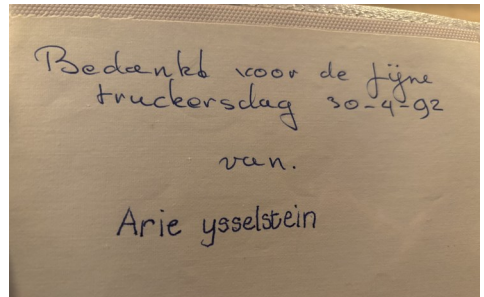 Bedankt voor de fijne
truckersdag 30-4-92
van.
Arie ysselstein